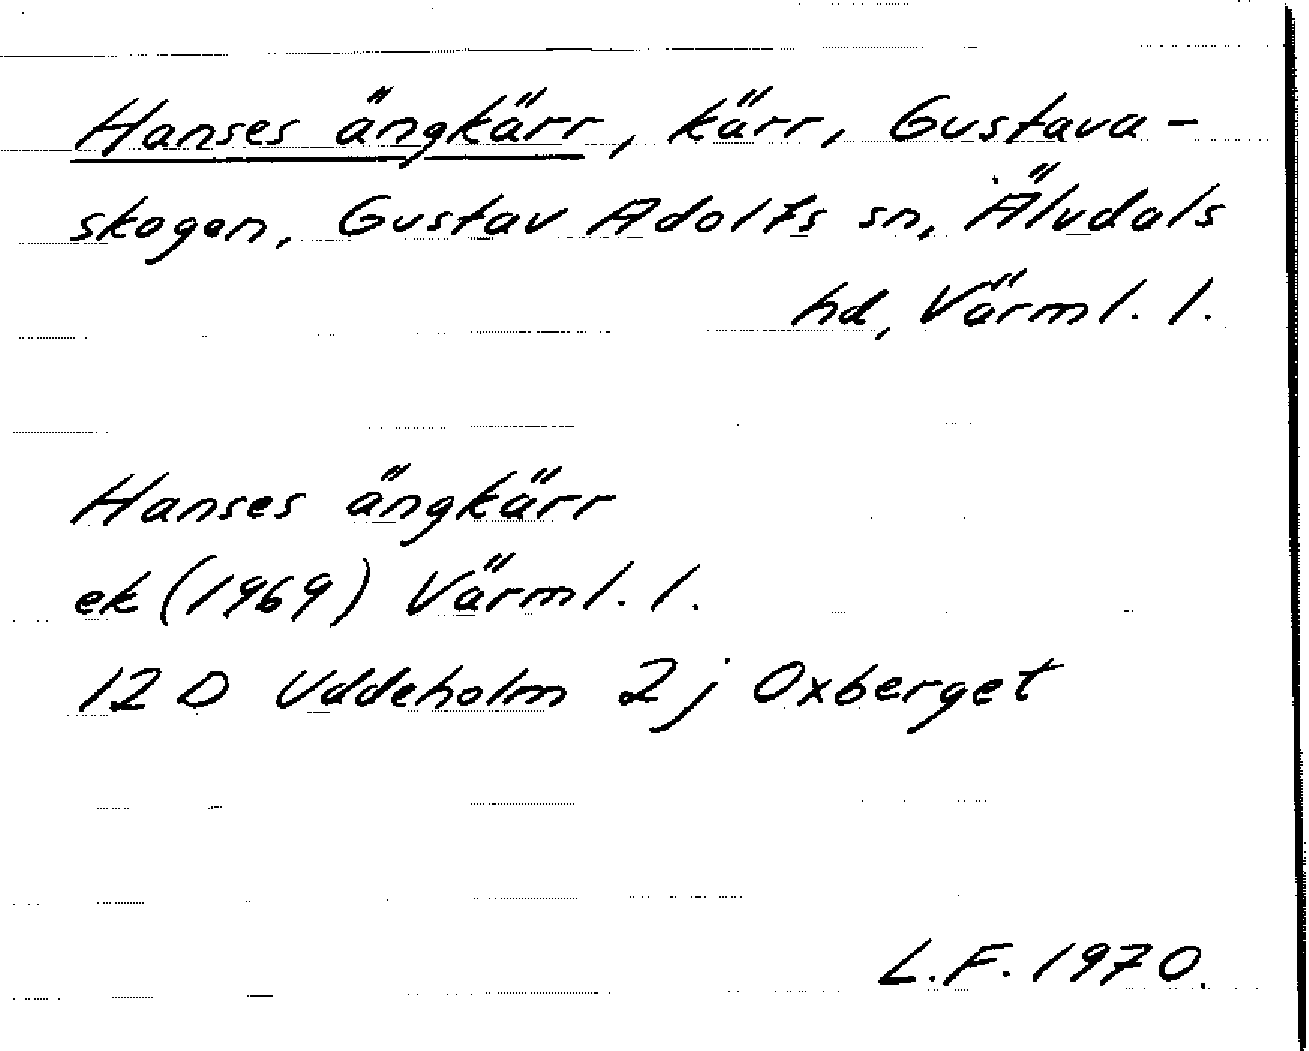 Hanses ängkärr, kärr, Gustava-
skogen, Gustav Adolfs sn, Älvdals
hd, Värml. l.
Hanses ängkärr
ek (1969) Värml. l.
12 D Uddeholm 2j Oxberget
L.F. 1970.